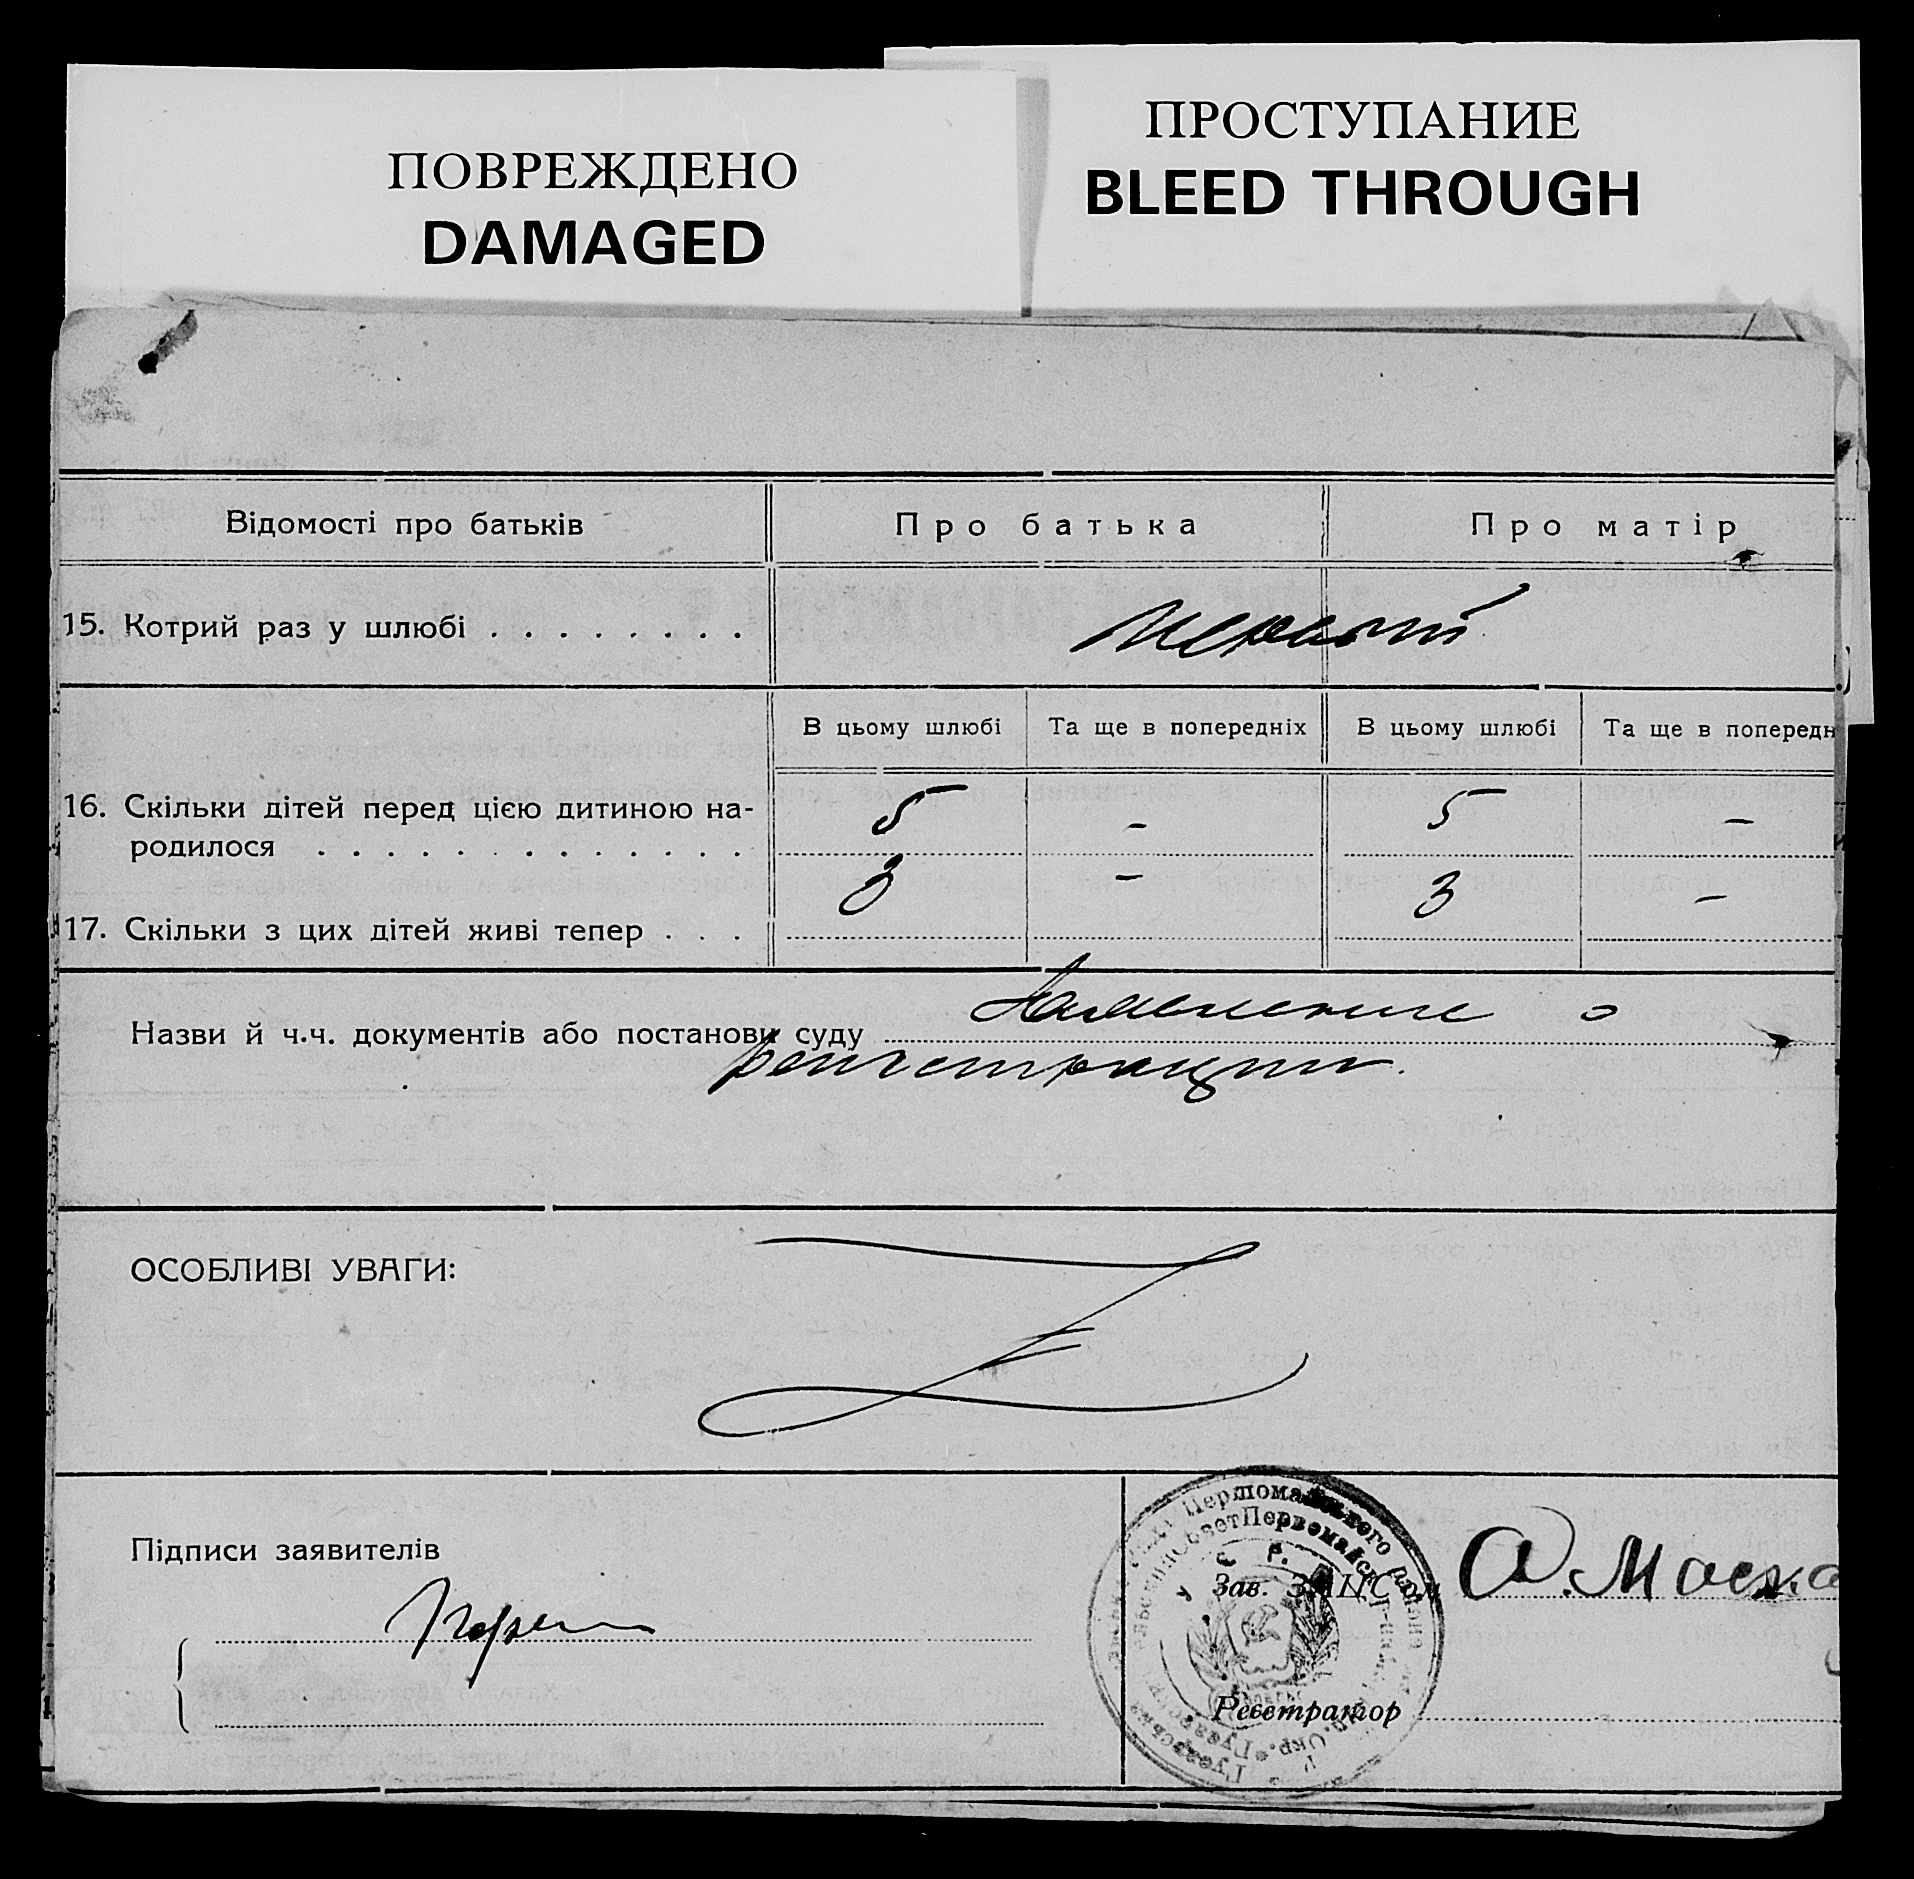 ПОВРЕЖДЕНО
DAMAGED
ПРОСТУПАНИЕ
BLEED THROUGH
Відомості про батьків
Про батька
Про матір
15. Котрий раз у шлюбі . . . . . . . .
первый
В цьому шлюбі
Та ще в попередніх
В цьому шлюбі
Та ще в попередн
16. Скільки дітей перед цією дитиною на-
родилося . . . . . . . . . . . . .
5 - 5 -
17. Скільки з цих дітей живі тепер . . .
3 - 3 -
Назви й ч.ч. документів або постанови суду
о
регистрации.
ОСОБЛИВІ УВАГИ:
Підписи заявителів
Зав. ЗАЦС'ом
А. Моск
Реєстратор
Першомайського району
Первомайск
У С Р. Р.